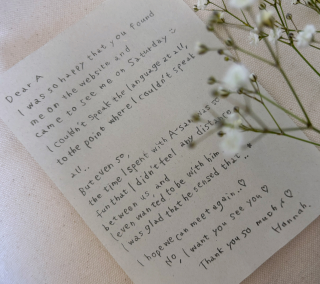 Dear A
I was so happy that you found
me on the website and
came to see me on Saturday ☺
I couldn't speak the language at all,
to the point where I couldn't speak
all..
But even so,
the time I spent with A-san was so
fun that I didn't feel any distance
between us, and
I even wanted to be with him
I was glad that he sensed that..
I hope we can meet again..♡
No, I want you see you ♡
Thank you so much ♡
Hannah.